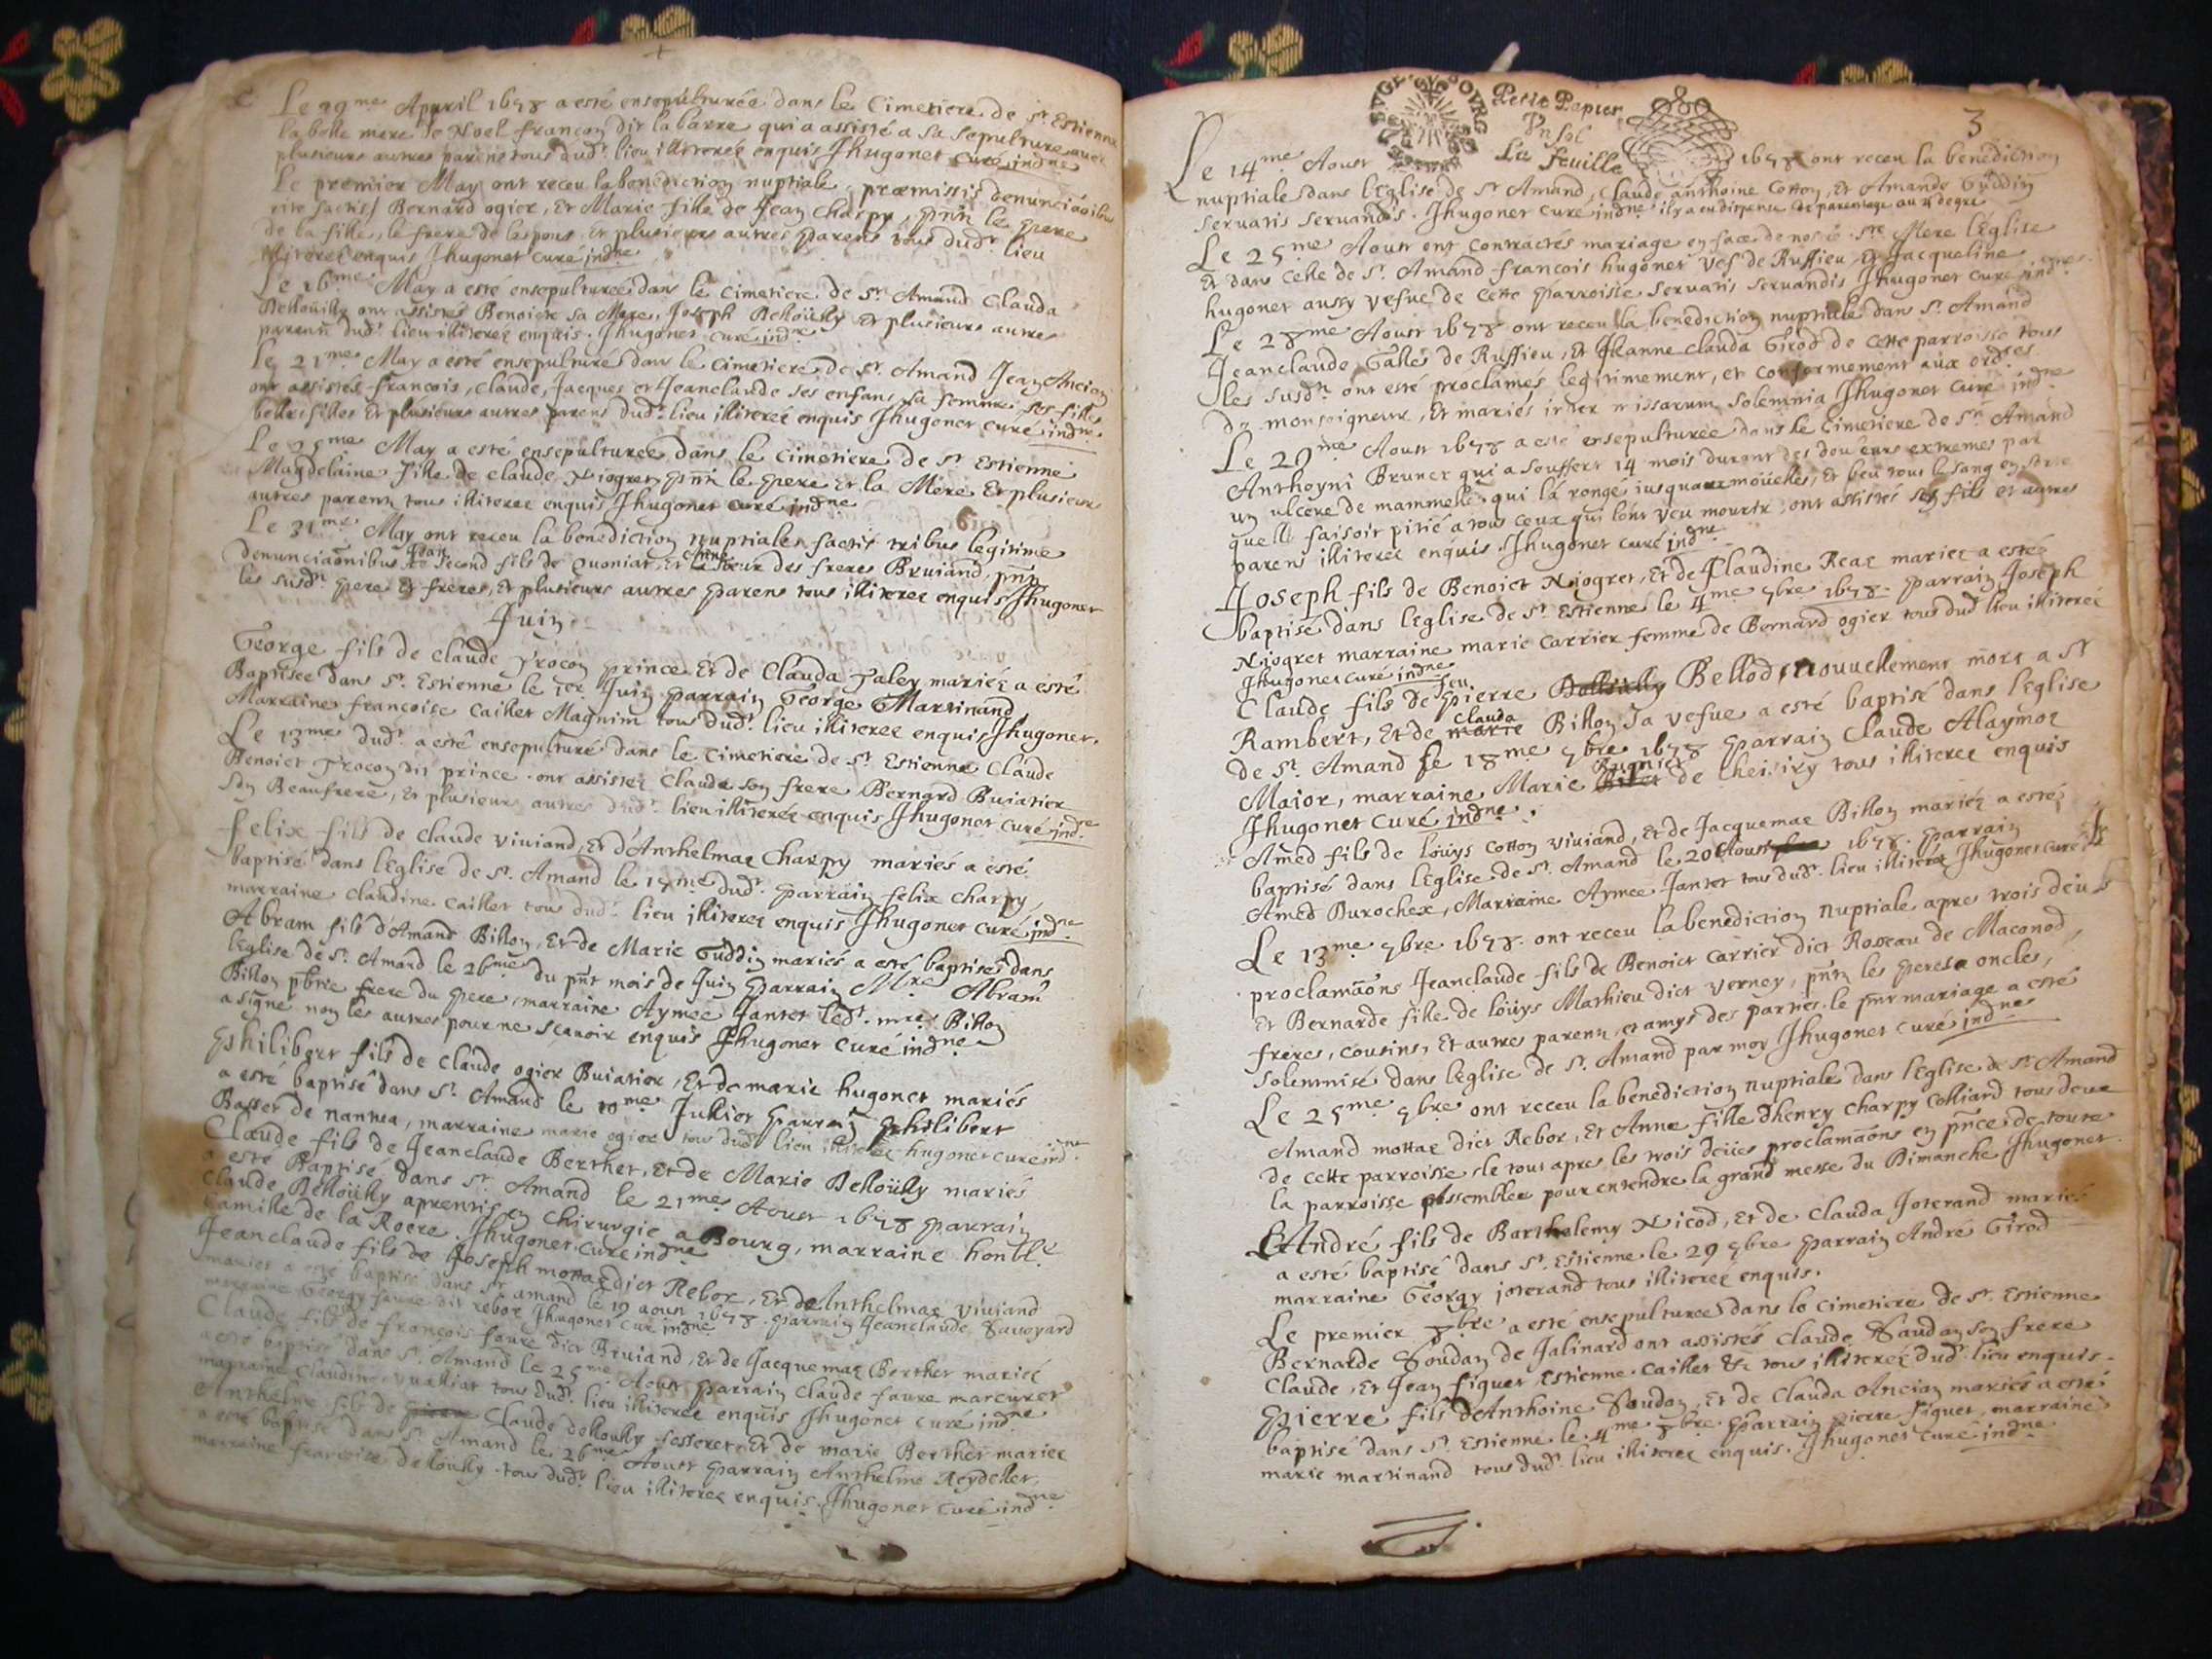 Le 29me Apuril 1678 a esté ensepulturée dans le Cimetiere de st Estienne
la belle mere de Noel françon dit labarre qui a assisté a sa sepulture avec
plusieurs autres parens tous dudt lieu illiterez enquis Jhugonet curé indne
Le premier May ont receu la benediction nuptiale, præmissis denunciãoibus
rite factis/ Bernard ogier, Et Marie fille de Jean Charpy, pñtz le pere
de la fille, le frere de lespoux et plusieurs autres parens tous dudt lieu
illiterez enquis Jhugonet curé indne
Le 16me May a esté ensepulturée dans le cimetiere de st Amand Clauda
Dellouilly ont assistés Benoiste sa Mere, Joseph Delloüilly Et plusieurs autres
parents dudt lieu illiterez enquis. Jhugonet curé indne
le 21me May a esté ensepulturé dans le cimetiere de st Amand Jean Ancian
ont assistés francois, claude, Jacques et Jeanclaude ses enfans sa femme, ses filles
belles filles Et plusieurs autres parens dudt lieu illiterez enquis Jhugonet curé indne
Le 25me May a esté ensepulturée dans le cimetiere de st Estienne
Magdelaine fille de claude Niogret pñtz le pere Et la Mere Et plusieurs
autres parentz tous illiterez enquis Jhugonet curé indne
Le 31me May ont receu la benediction nuptiale factis tribus legitime
denunciãonibus Jean second fils de Quoniat, Et Anne sœur des freres Bruiand, pñtz
les susdts pere Et freres, Et plusieurs autres parens tous illiterez enquis Jhugonet
Juin
George fils de claude Procon prince Et de Clauda Paley mariez a esté
Baptisée dans st. Estienne le 1er Juin parrain George Martinand
Marraine francoise Caillet Magnim tous dudt lieu illiterez enquis Jhugonet.
Le 13me dudt a esté ensepulturé dans le cimetiere de st Estienne Claude
Benoict Procon dit prince. ont assistez Claude son frere Bernard Buiatier
son Beaufrere, Et plusieurs autres dudt lieu illiterez enquis Jhugonet curé indne
felix fils de claude viviand, Et d'Anthelmaz Charpy mariés a esté
baptisé dans lEglise de st. Amand le 15me dudt parrain felix Charpy,
marraine Claudine Caillet tous dudt lieu illiterez enquis Jhugonet curé indne
Abram fils d'Amand Billon, Et de Marie Guddin mariés a esté baptisé dans
lEglise de st. Amand le 26me du pñt mois de Juin parrain Mre Abram
Billon pbtre frere du pere, marraine Aymée Jantet ledt. mre Billon
a signé non les autres pour ne scavoir enquis Jhugonet curé indne
Philibert fils de claude ogier Buiatier, Et de marie hugonet mariés
a esté baptisé dans st Amand le 10me Juillet parrain Philibert
Basset de nantua, marraine marie ogier tous dudt lieu illiterez hugonet curé indne
Claude fils de Jeanclaude Berthet, Et de Marie Delloüilly mariés
a esté Baptisé dans st Amand le 21me Aoust 1678 parrain
claude Delloüilly aprentis en chirurgie a Bourg, marraine honble
Camille de la Roere. Jhugonet curé indne
Jeanclaude fils de Joseph mottaz dict Rebor, Et de Anthelmaz Viviand
mariez a esté baptisé dans st amand le 19 aoust 1678. parrain Jeanclaude Savoyard
marraine Georgy faure dit rebor Jhugonet cur indne
Claude fils de francois faure dict Bruiand, Et de Jacquemaz Berthet mariez
a esté baptisé dans st Amand le 25me Aoust parrain claude faure marcuret
marraine Claudine vuilliat tous dudt lieu illiterez enquis Jhugonet curé indne
Anthelme fils de Claude delloully fesseret Et de marie Berthet mariez
a esté baptisé dans st Amand le 26me Aoust parrain Anthelme Reydellet,
marraine francoise delloully tous dudt lieu illiterez enquis. Jhugonet curé indne
BVGE BOVRG
Petit Papier
Vn sol
La feuille
3
Le 14me Aoust 1678 ont receu la benediction
nuptiale dans lEglise de st Amand, Claude anthoine Cotton, Et Amande Guddin
servatis servandis. Jhugonet curé indne il y a eu dispense de parentage au 4 degré
Le 25me Aoust ont contractés mariage en face de nostre ste Mere lEglise
Et dans celle de st. Amand francois hugonet vef de Ruffieu, Et Jacqueline
hugonet aussy vefue de cette parroisse servatis servandis Jhugonet curé indne
Le 28me Aoust 1678 ont receu la benediction nuptiale dans st. Amand
Jeanclaude Gallé de Ruffieu, Et Jeanne clauda Girod de cette parroisse tous
les susdts ont esté proclamés legitimement, et conformement aux ordses
de monseigneur, Et mariés inter missarum solemnia Jhugonet curé indne
Le 29me Aoust 1678 a esté ensepulturée dans le Cimetiere de st Amand
Anthoyni Brunet qui a souffert 14 mois durant des douleurs extremes par
un ulcere de mammelle qui la rongé iusquaux mouelles, Et beu tous le sang en sorte
quelle faisoit pitié a tous ceux qui lont veu mourir, ont assistés ses fils et autres
parens illiterez enquis. Jhugonet curé indne
Joseph fils de Benoict Niogret, Et de Claudine Reaz mariez a esté
baptisé dans lEglise de st Estienne le 4me 7bre 1678. parrain Joseph
Niogret marraine marie Carrier femme de Bernard ogier tous dudt lieu illiterez
Jhugonet curé indne
Claude fils de feu pierre Bellod, nouvellement mort a st
Rambert, Et de Clauda Billon sa vefue a esté baptisé dans lEglise
de st. Amand le 18me 7bre 1678 parrain Claude Alaymoz
Maior, marraine Marie de Cheisiry tous illiterez enquis
Jhugonet Curé indne.
Amed fils de loüys cotton viviand, Et de Jacquemaz Billon mariéz a esté
baptisé dans lEglise de st. Amand le 20 Aoust 1678. parrain
Amed Durochex, Marraine Aymee Jantet tous dudt. lieu illiterez Jhugonet curé
Le 13me 7bre 1678. ont receu la benediction nuptiale apres trois deües
proclamãons Jeanclaude fils de Benoict Carrier dict Rosseau de Maconod,
Et Bernarde fille de loüys Mathieu dict verney, pñtz les peres oncles,
freres, cousins, Et autres parentz, et amys des parties. le pñt mariage a esté
solemnisé dans lEglise de st. Amand par moy Jhugonet curé indne
Le 25me 7bre ont receu la benediction nuptiale dans lEglise de st Amand
Amand mottaz dict Rebor, Et Anne fille d'henry Charpy Colliard tous deux
de cette parroisse, le tout apres les trois deües proclamãons en pñce de toute
la parroisse assemblée pour entendre la grand messe du Dimanche Jhugonet.
André fils de Barthelemy Nicod, Et de Clauda Joterand mariés
a esté baptisé dans st. Estienne le 29 7bre parrain André Girod
marraine Georgy joterand tous illiterez enquis.
Le premier 8bre a esté ensepulturée dans le cimetiere de st. Estienne
Bernarde Soudan de Jalinard ont assistés Claude Saudan son frere
Claude, Et Jean figuet, Estienne Caillet &c tous illiterez dudt lieu enquis.
Pierre fils d'Anthoine Soudan, Et de Clauda Ancian mariés a esté
baptisé dans st Estienne le 4me 8bre parrain pierre figuet, marraine
marie martinand tous dudt lieu illiterez enquis. Jhugonet curé indne